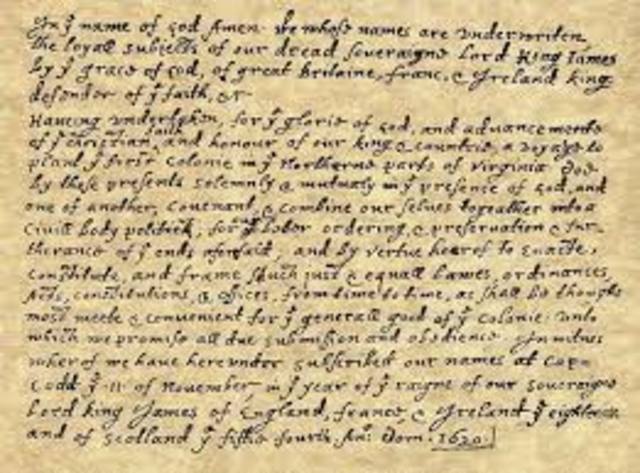 In ẏ name of god Amen. We whose names are underwriten,
the loyall subjects of our dread soveraigne Lord King James
by ẏ grace of God, of great Britaine, franc, & Ireland king,
defender of ẏ faith, &c
Haveing undertaken, for ẏ glorie of God, and advancemente
of ẏ christian faith and honour of our king & countrie, a voyage to
plant ẏ first colonie in ẏ Northerne parts of Virginia. Doe
by these presents solemnly & mutualy in ẏ presence of God, and
one of another, covenant, & combine our selves togeather into a
Civill body politick; for ẏ better ordering, & preservation & fur-
therance of ẏ ends aforesaid; and by vertue hearof to Enacte,
constitute, and frame shuch just & equall Lawes, ordinances,
Acts, constitutions, & offices, from time to time, as shall be thought
most meete & convenient for ẏ generall good of ẏ colonie: unto
which we promise all due submission and obedience. In witnes
wherof we have hereunder subscribed our names at Cape
Codd ẏ ·11· of November, in ẏ year of ẏ raigne of our soveraigne
Lord king James of England, france, & Ireland ẏ eighteenth
and of Scotland ẏ fiftie fourth. An: Dom. 1620.